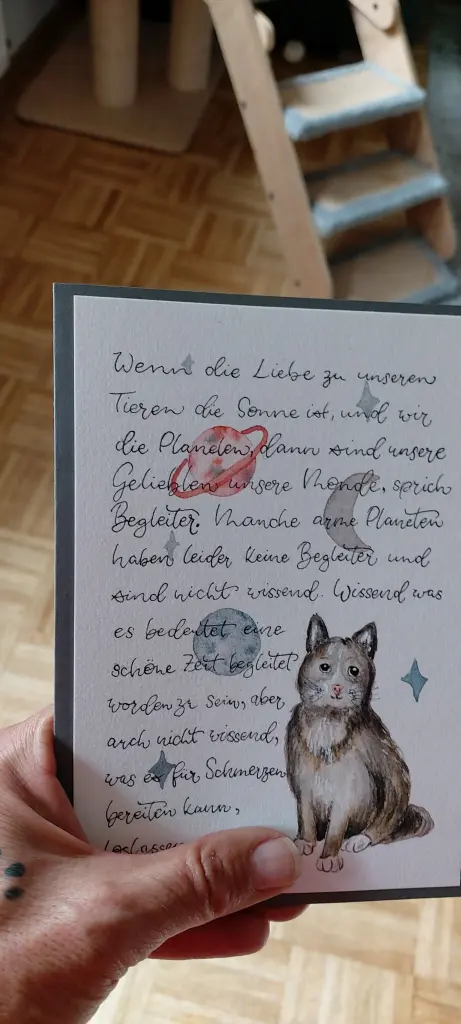 Wenn die Liebe zu unseren
Tieren die Sonne ist, und wir
die Planeten, dann sind unsere
Geliebten unsere Monde, sprich
Begleiter. Manche arme Planeten
haben leider keine Begleiter und
sind nicht wissend. Wissend was
es bedeutet eine
schöne Zeit begleitet
worden zu sein, aber
auch nicht wissend,
was es für Schmerzen
bereiten kann,